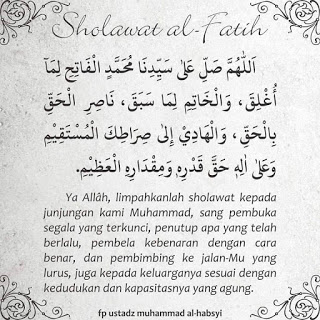 Sholawat al-Fatih
اَللّٰهُمَّ صَلِّ عَلَى سَيِّدِنَا مُحَمَّدٍ الْفَاتِحِ لِمَا
أُغْلِقَ، وَالْخَاتِمِ لِمَا سَبَقَ، نَاصِرِ الْحَقِّ
بِالْحَقِّ، وَالْهَادِيْ إِلَى صِرَاطِكَ الْمُسْتَقِيْمِ
وَعَلَى اٰلِهِ حَقَّ قَدْرِهِ وَمِقْدَارِهِ الْعَظِيْمِ.
Ya Allâh, limpahkanlah sholawat kepada
junjungan kami Muhammad, sang pembuka
segala yang terkunci, penutup apa yang telah
berlalu, pembela kebenaran dengan cara
benar, dan pembimbing ke jalan-Mu yang
lurus, juga kepada keluarganya sesuai dengan
kedudukan dan kapasitasnya yang agung.
fp ustadz muhammad al-habsyi